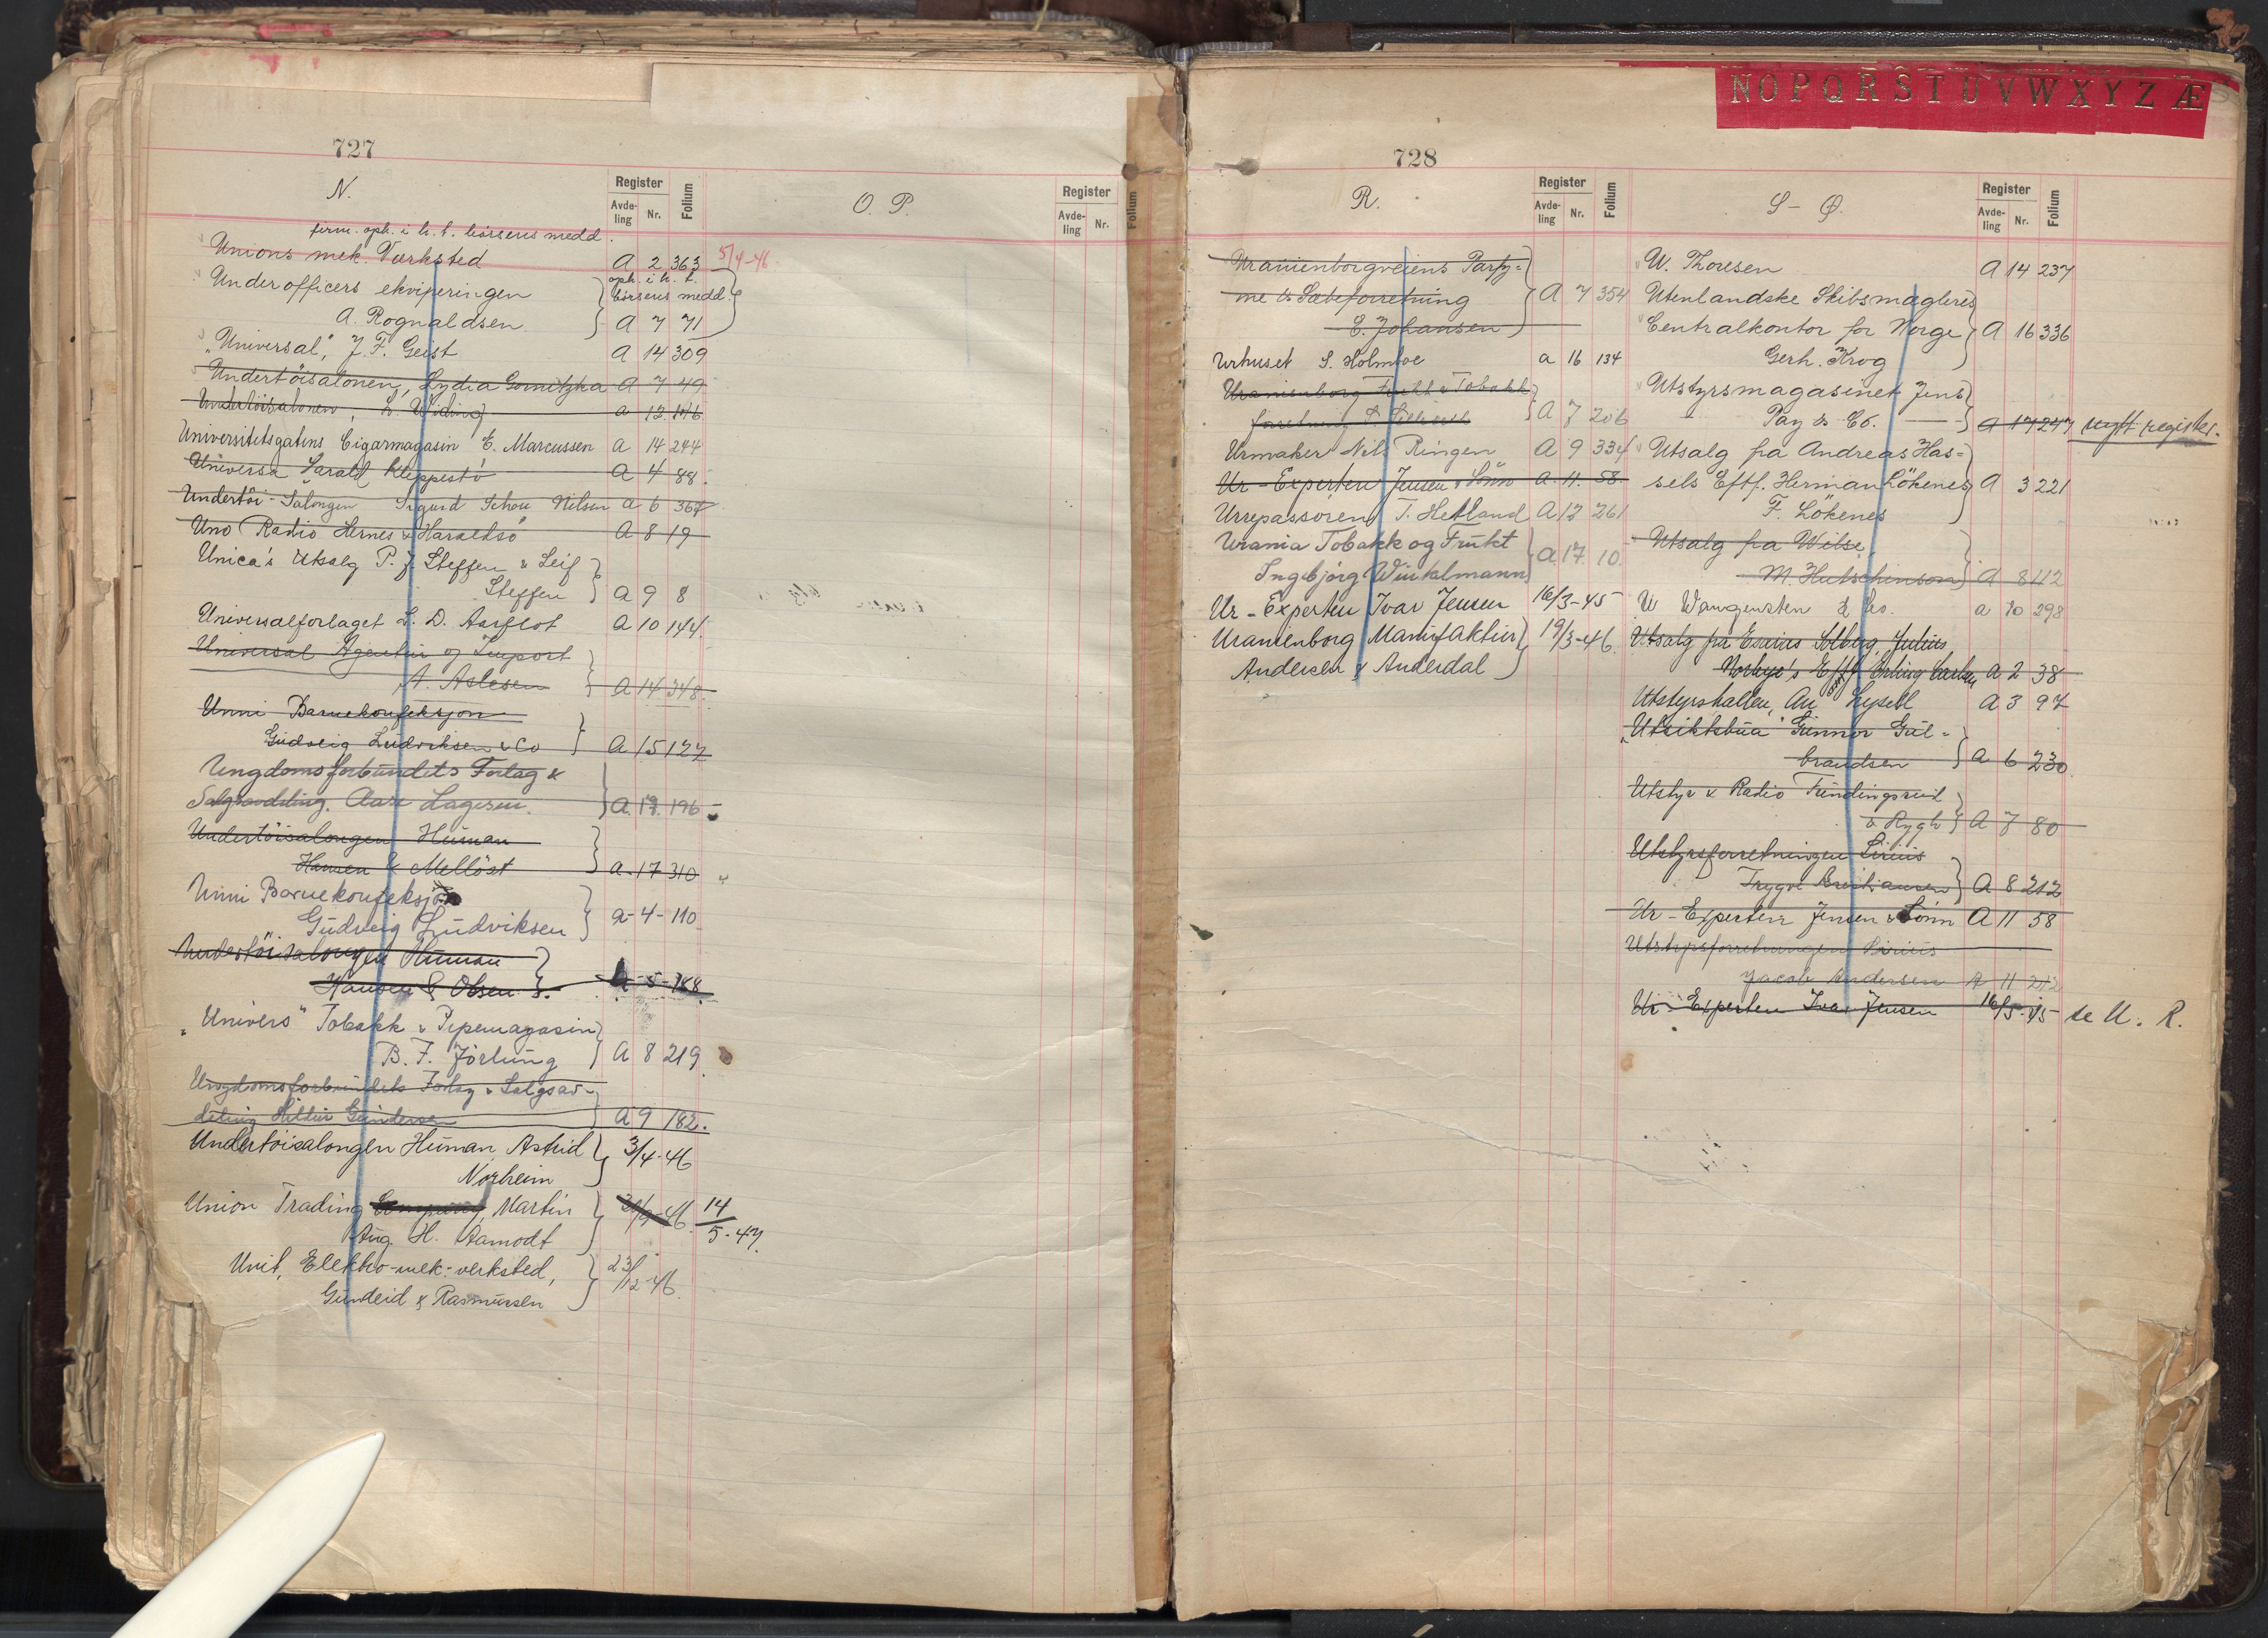 727
N.
Register
Avde-
ling
Nr.
Folium
O. P.
Register
Avde-
ling
Nr.
Folium
firm. oph. i h. t. börsens medd.
Unions mek. Værksted A 2 363 5/4-46
Underofficers ekviperingen oph. i h. t.
börsens medd.
A. Rognaldsen A 7 71
"Universal", J. F. Geist A 14 309
Undertöisalonen, Lydia Gornitzka A 7 49
Undertöisalonen, L. Widing a 12 106
Universitetsgatens Cigarmagasin E. Marcussen a 14 244
Universa Harald Kleppestö A 4 88.
Undertöi-Salongen Sigurd Schou Nilsen a 6 367
Uno Radio Hernes & Haraldsö A 8 19
Unica's Utsalg P. J. Steffen & Leif
Steffen A 9 8
Universalforlaget L. D. Aarflot A 10 144.
Universal Agentur og Import
A. Aslesen A 14 348.
Unni Barnekonfeksjon
Gudveig Ludviksen & Co A 15 127
Ungdomsforbundets Forlag &
Salgsavdeling. Aase Lagesen. A. 17. 196
Undertöisalongen Human
Hansen & Mellöst a-17 310
Unni Barnekonfeksjon
Gudveig Ludviksen a-4-110
Undertöisalongen Human
Hansen & Olsen a-5-188
"Univers" Tobakk & Pipemagasin
B. F. Jörlung A 8 219
Ungdomsforbundets Forlag & Salgsav-
deling Hildur Gundersen A 9 182.
Undertöisalongen Human, Astrid 3/4-46
Norheim
Union Trading Company, Martin -46 14/5-47
Aug. H. Aamodt
Unit, Elektro-mek. verksted, 23/12-46.
Gundeid & Rasmussen
728
NOPQRSTUVWXYZÆ
R.
Register
Avde-
ling
Nr.
Folium
S - Ø.
Register
Avde-
ling
Nr.
Folium
Uranienborgveiens Parfy-
me & Sæbeforretning A 7 354
E. Johansen
Urhuset S. Holmboe a 16 134
Uranienborg Frukt & Tobakk
forretning A 7 206
Urmaker Nils Ringen A 9 334
Ur-Experten Jensen & Sönn a. 11. 58.
Urrepassoren T. Hetland A 12 261
Urania Tobakk og Frukt A 17. 10.
Ingebjörg Winkelmann
Ur-Experten Ivar Jensen 16/3-45
Uranienborg Manufaktur 19/3-46.
Andersen & Anderdal
W. Thoresen A 14 237
Utenlandske Skibsmægleres
Centralkontor for Norge A 16 336
Gerh. Krog
Utstyrsmagasinet Jens
Pay & Co. A 17 247 nytt register.
Utsalg fra Andreas Has-
sels Eftf. Herman Lökenes A 3 221
F. Lökenes
Utsalg fra Wilse
M. Hutschinson A 8 112
U Wangensten & Co. a 10 298
Utsalg fra Enevius Solberg, Julius
Norbye's Eftf Erling Carlsen a 2 38
Utstyrshallen, Aug Lysell A 3 97
"Utsiktsbua" Gunnor Gul-
brandsen a 6 230
Utstyr & Radio Fundingsrud
& Rygh A 7 80
Utstyrsforretningen Sirius
Trygve Kristiansen A 8 212
Ur-Experten Jensen & Sönn A 11 58
Utstyrsforretningen Sirius
Jacob Andersen A 11 212
Ur-Experten Ivar Jensen 16/3-45 se U. R.